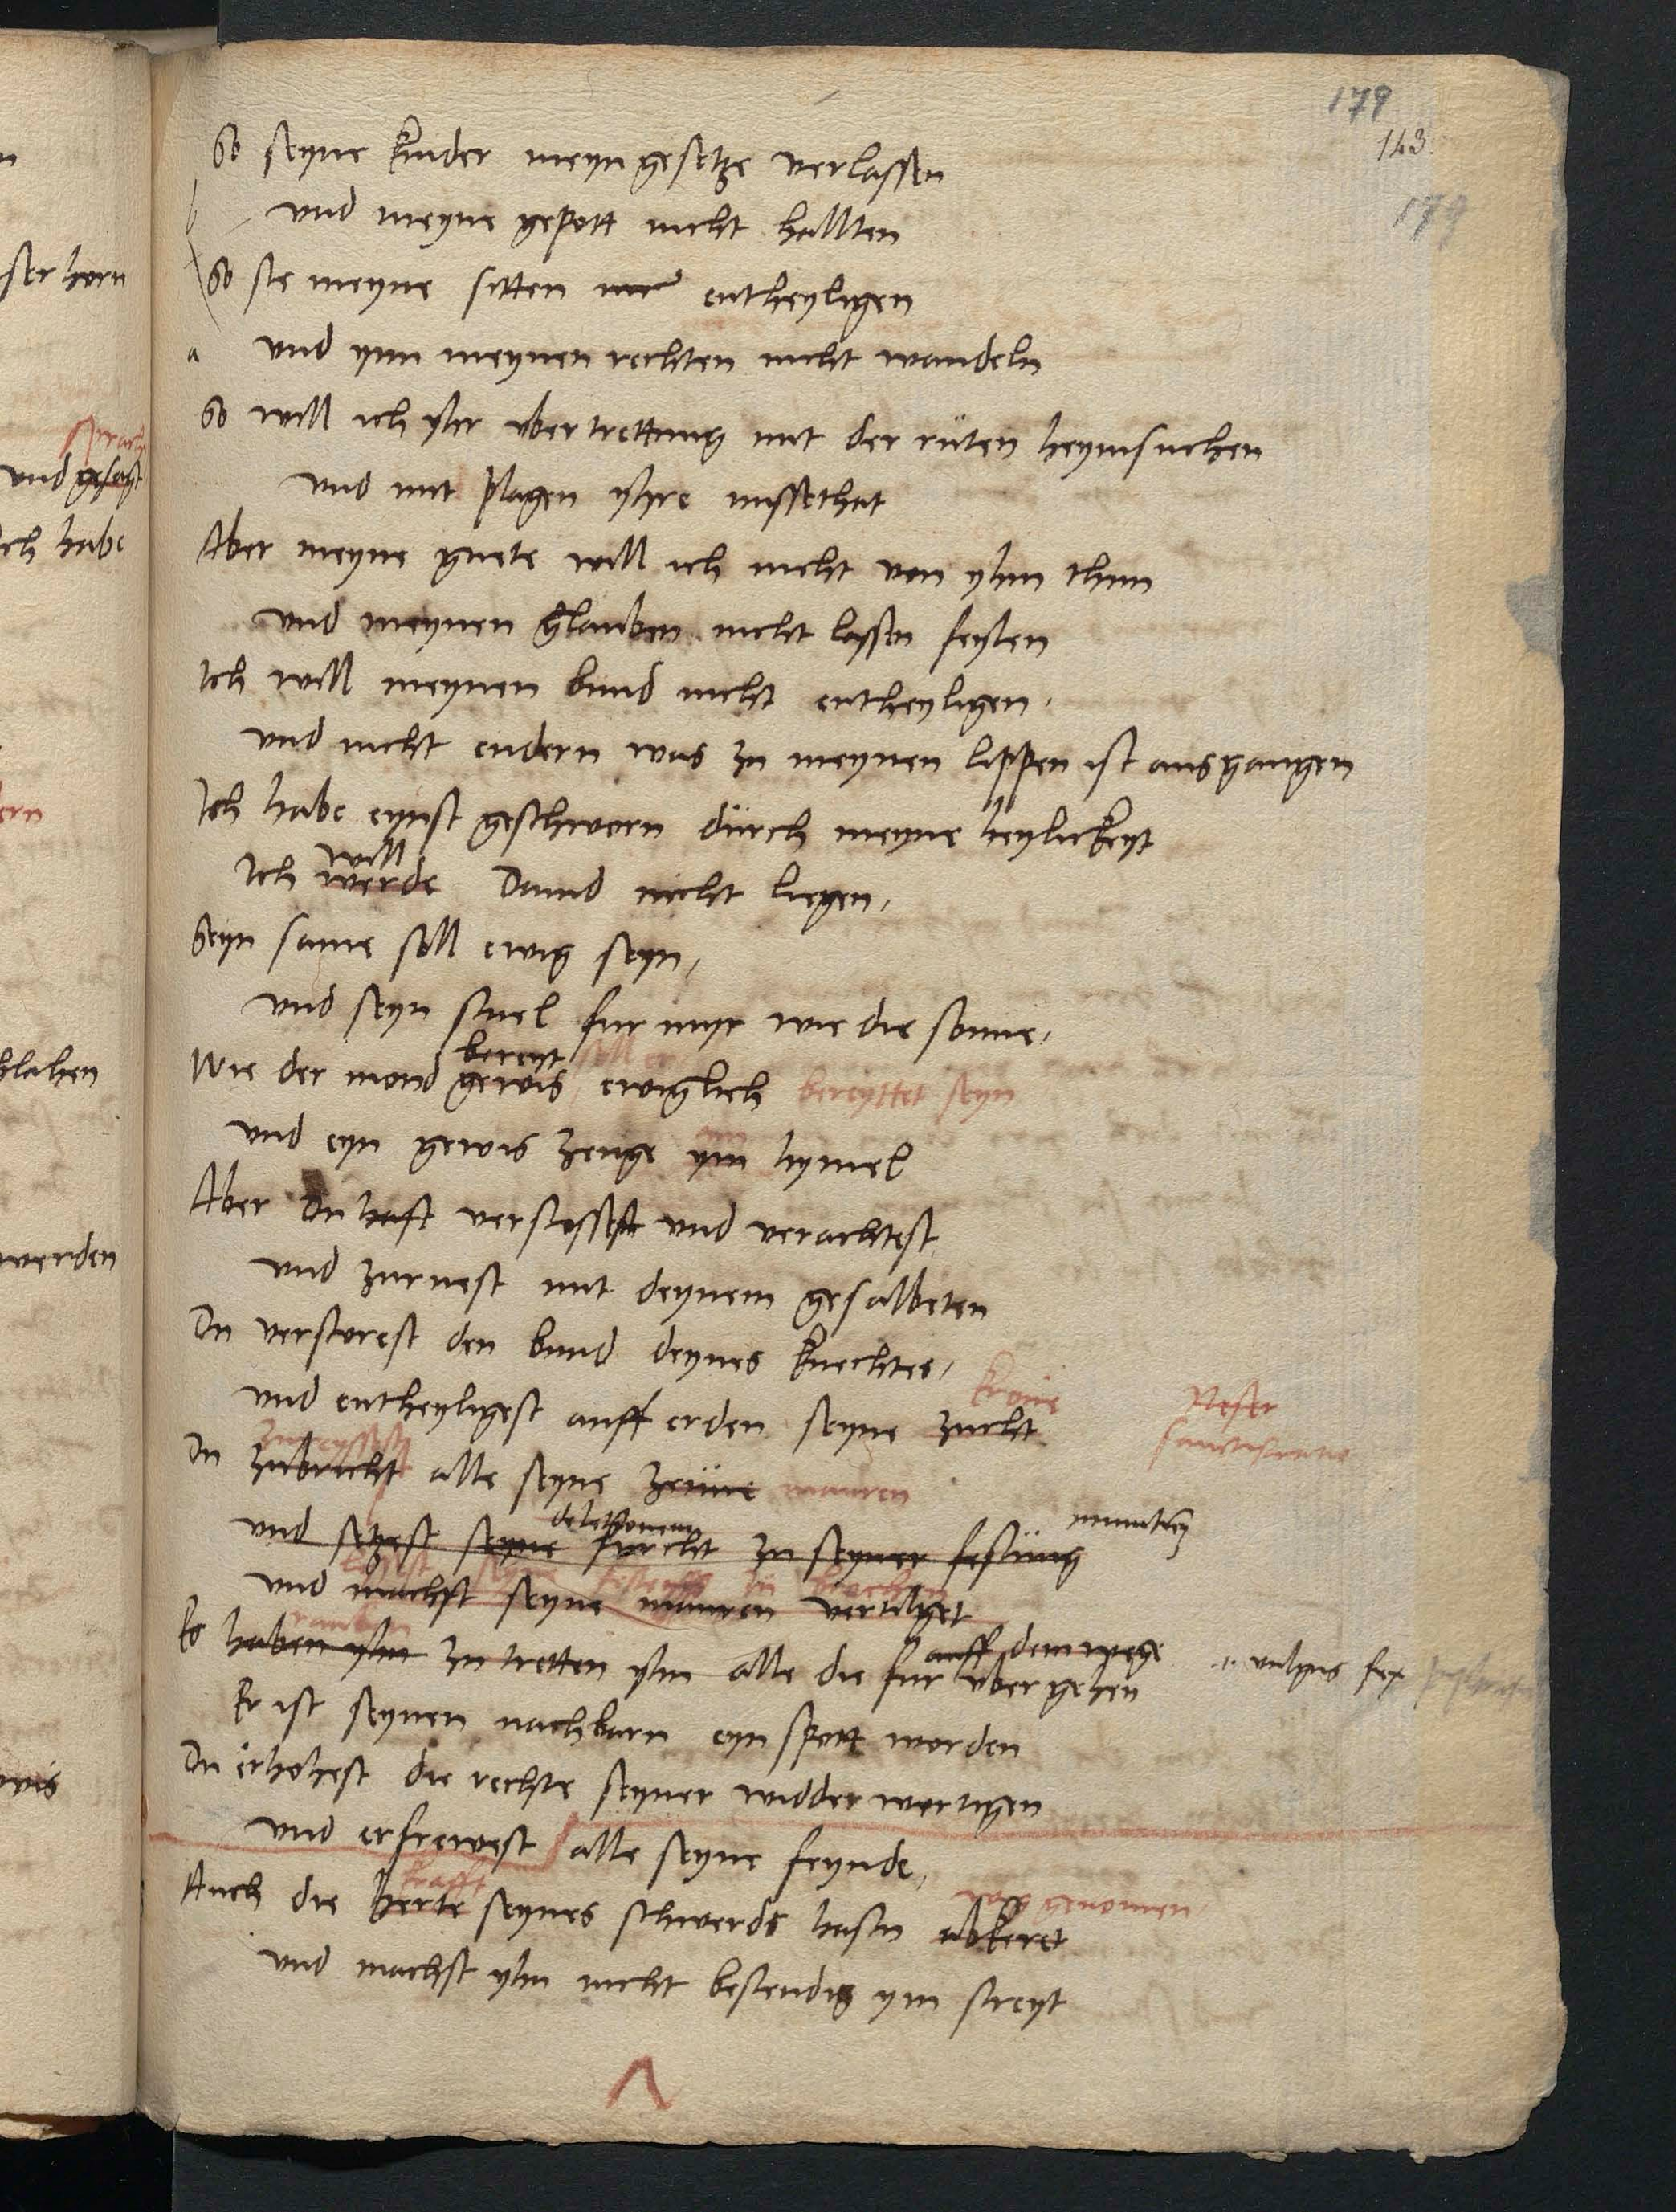 179
143.
179
So seyne kinder meyn gesetze verlassen
b und meyne gepott nicht hallten
So sie meyne sitten entheyligen
a und ynn meynen rechten nicht wandeln
So will ich yhr ubertrettung mit der ruten heymsuchen
und mit plagen yhre missethat
Aber meyne guete will ich nicht von yhm thun
und meynen glauben nicht lassen feylen
Ich will meynen bund nicht entheyligen.
und nicht endern was zu meynen lippen ist ausgangen
Ich habe eynst geschworn durch meyne heylickeyt
will
Ich werde Dauid nicht liegen,
Seyn same soll ewig seyn,
und seyn stuel fur myr wie die sonne,
bereyt soll er
Wie der mond gewis ewiglich bereyttet seyn
und eyn gewis zeuge ym hymel
Aber du hast verstossest und verachtest
und zurnest mit deynem gesalbeten
Du verstorest den bund deynes knechtes,
krone
und entheyligest auff erden seyne zucht
Neser
sanctificatio
zureyssest
Du zubrichst alle seyne zeune mauren
und setzest seyne furcht zu seyner festung
und machst seyne mauren vertilget
rauben
auff dem wege
Es haben yhn zu tretten yhn alle die fur uber gehen
Er ist seynen nachbarn eyn spott worden
Du erhohest die rechte seyner widderwertigen
und erfrewest alle seyne feynde,
krafft
weg genomen
Auch die herte seynes schwerds hastu abkeret
und machst yhn nicht bestendig ym streyt
ser horn
sprach
und gesagt
Ich habe
ern
hlahen
werden
wis